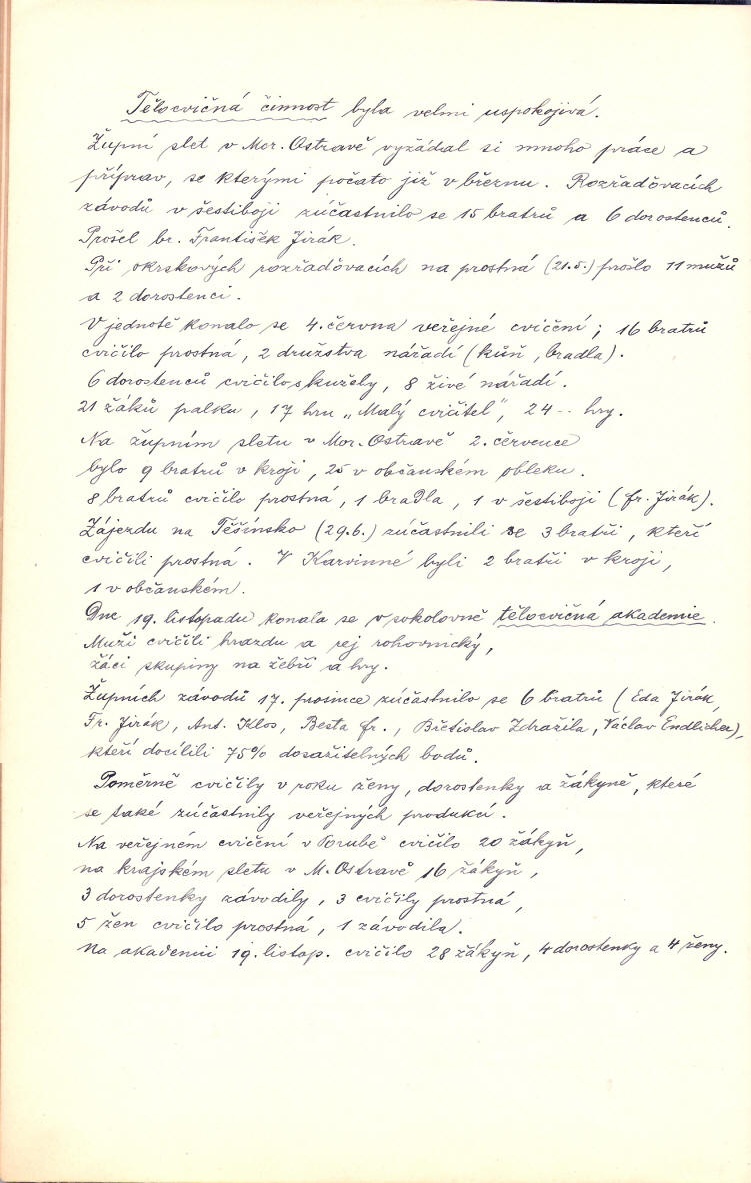 Tělocvičná činnost byla velmi uspokojivá.
Župní slet v Mor. Ostravě vyžádal si mnoho práce a
příprav, se kterými počato již v březnu. Rozřaďovacích
závodů v šestiboji zúčastnilo se 15 bratrů a 6 dorostenců.
Prošel br. František Jirák.
Při okrskových rozřaďovacích na prostná (21.5.) prošlo 11 mužů
a 2 dorostenci.
V jednotě konalo se 4. června veřejné cvičení; 16 bratrů
cvičilo prostná, 2 družstva nářadí (kůň, bradla).
6 dorostenců cvičilo s kužely, 8 živé nářadí.
21 žáků palku, 17 hru „Malý cvičitel", 24 -- hry.
Na župním sletu v Mor. Ostravě 2. července
bylo 9 bratrů v kroji, 25 v občanském obleku.
8 bratrů cvičilo prostná, 1 bradla, 1 v šestiboji (fr. Jirák).
Zájezdu na Těšínsko (29.6.) zúčastnili se 3 bratři, kteří
cvičili prostná. V Karvinné byli 2 bratři v kroji,
1 v občanském.
Dne 19. listopadu konala se v sokolovně tělocvičná akademie.
Muži cvičili hrazdu a rej rohovnický,
žáci skupiny na žebři a hry.
Župních závodů 17. prosince zúčastnilo se 6 bratrů (Eda Jirák,
Fr. Jirák, Ant. Klos, Besta fr., Břetislav Zdražila, Václav Endlicher),
kteří docílili 75% dosažitelných bodů.
Poměrně cvičily v roku ženy, dorostenky a žákyně, které
se také zúčastnily veřejných produkcí.
Na veřejném cvičení v Porubě cvičilo 20 žákyň,
na krajském sletu v M. Ostravě 16 žákyň,
3 dorostenky závodily, 3 cvičily prostná,
5 žen cvičilo prostná, 1 závodila.
Na akademii 19. listop. cvičilo 28 žákyň, 4 dorostenky a 4 ženy.